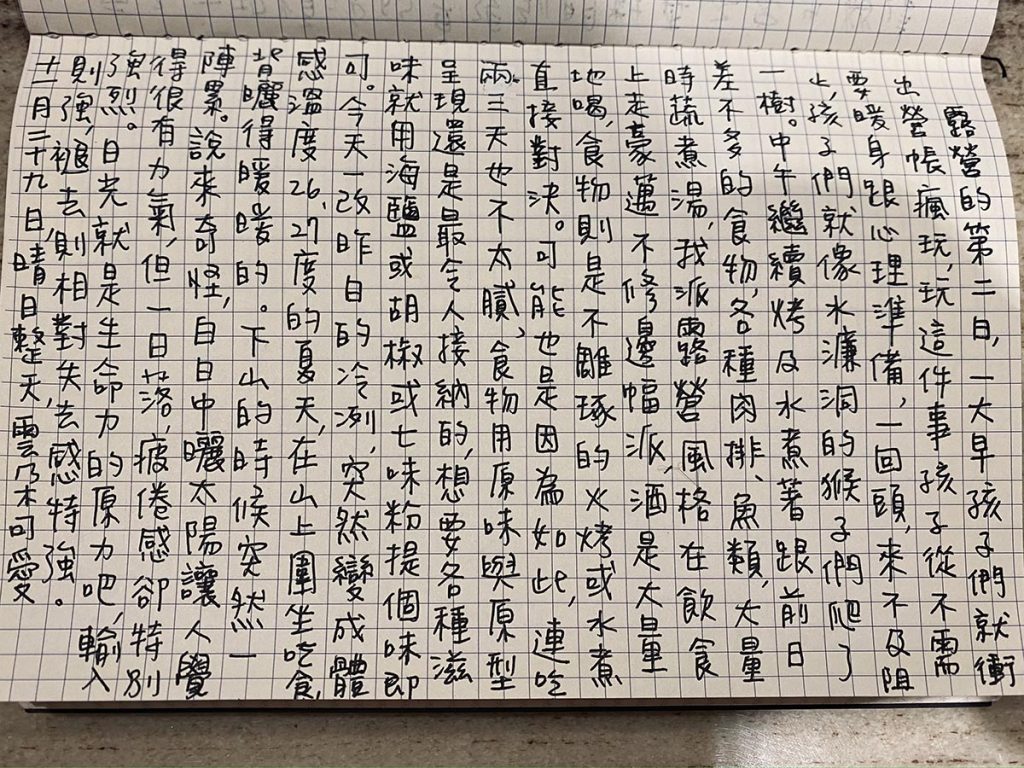 露營的第二日，一大早孩子們就衝
出營帳瘋玩，玩這件事孩子從不需
要暖身跟心理準備，一回頭，來不及阻
止，孩子們就像水濂洞的猴子們爬了
一樹。中午繼續烤及水煮著跟前日
差不多的食物，各種肉排、魚類，大量
時蔬煮湯，我派露營風格在飲食
上走豪邁不修邊幅派，酒是大量
地喝，食物則是不雕琢的火烤或水煮
直接對決。可能也是因為如此，連吃
兩三天也不太膩，食物用原味與原型
呈現還是最令人接納的，想要各種滋
味就用海鹽或胡椒或七味粉提個味即
可。今天一改昨日的冷冽，突然變成體
感溫度26，27度的夏天，在山上圍坐吃食，
背曬得暖暖的。下山的時候突然一
陣累。說來奇怪，白日中曬太陽讓人覺
得很有力氣，但一日落，疲倦感卻特別
強烈。日光就是生命力的原力吧，輸入
則強，褪去則相對失去感特強。
十二月二十九日，晴日整天，雲朵可愛